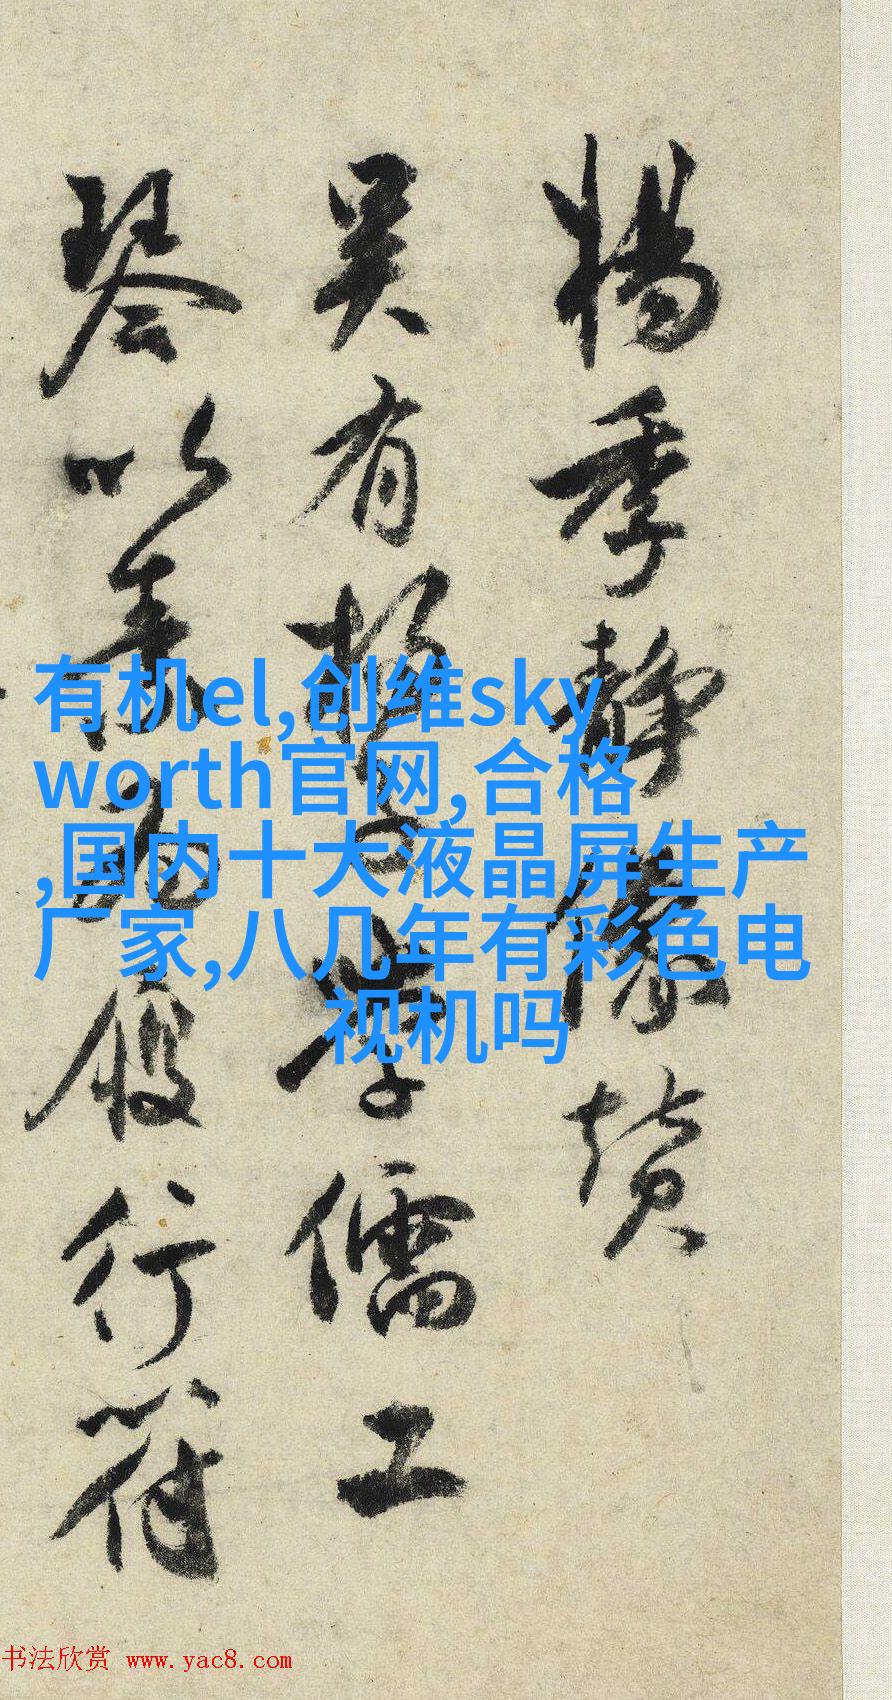 楊季静像賛
吴有楊子學儒工
琴以素為履行符
有机el,创维sky
worth官网,合格
,国内十大液晶屏生产
厂家,八几年有彩色电
视机吗
书法欣赏 www.yac8.com